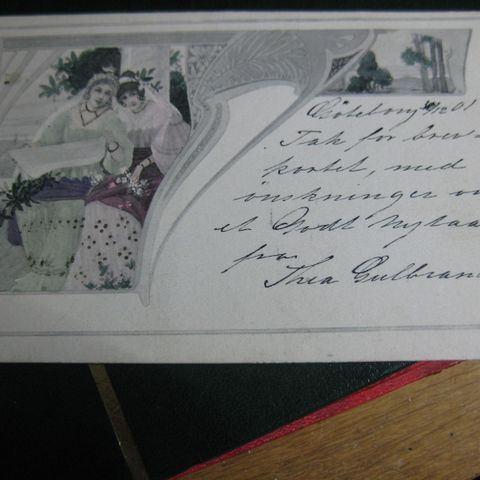 Göteborg 30/12 01
Tak for brev-
kortet, med
önskninger om
et Godt Nytaa
fra
Thea Gulbran